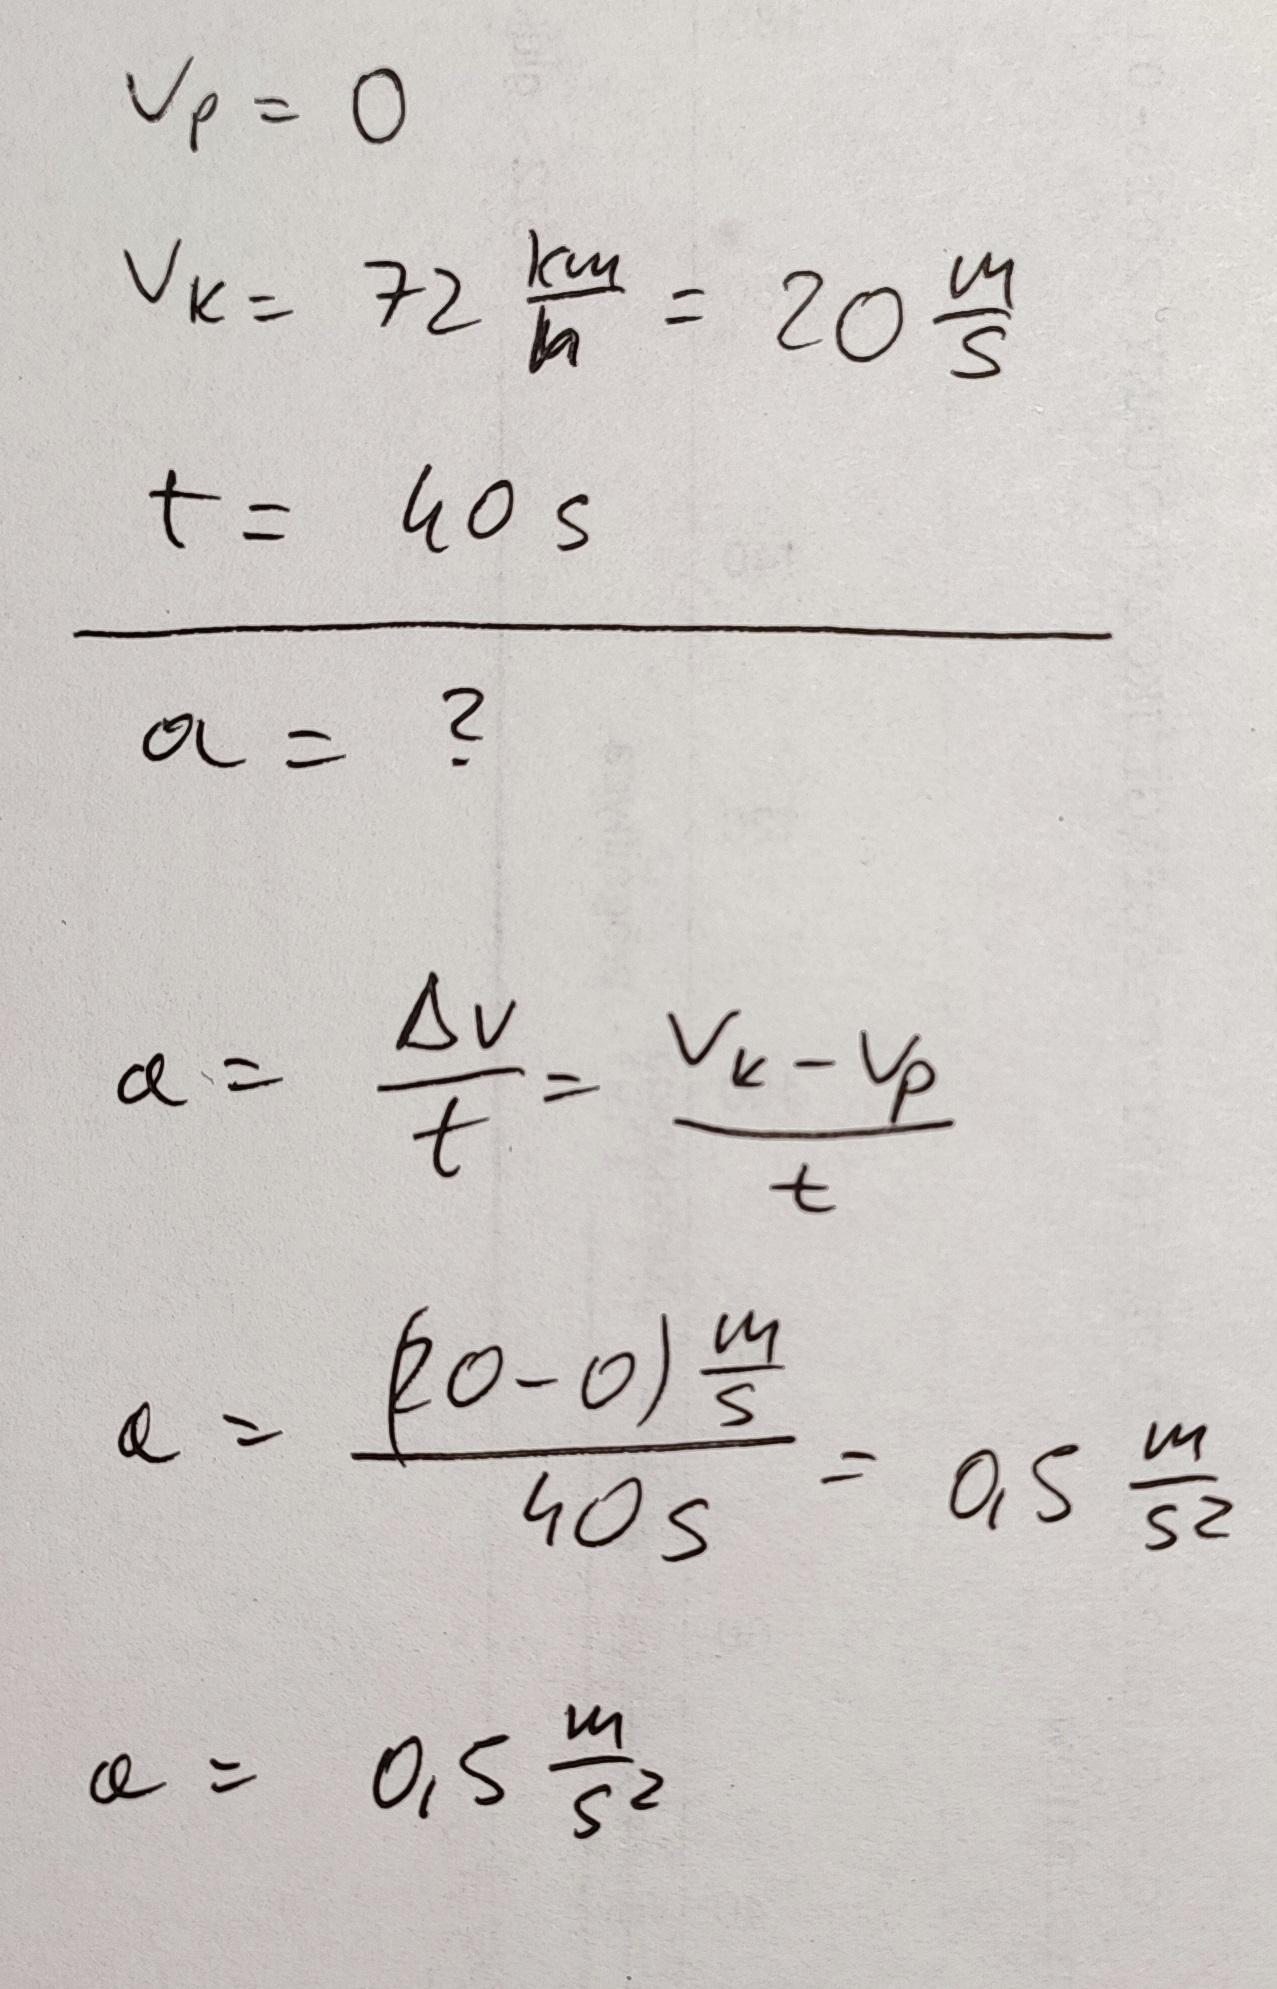 Vp = 0
Vk = 72 km/h = 20 m/s
t = 40 s
a = ?
a = Δv/t = (Vk - Vp)/t
a = (20-0) m/s / 40 s = 0,5 m/s²
a = 0,5 m/s²